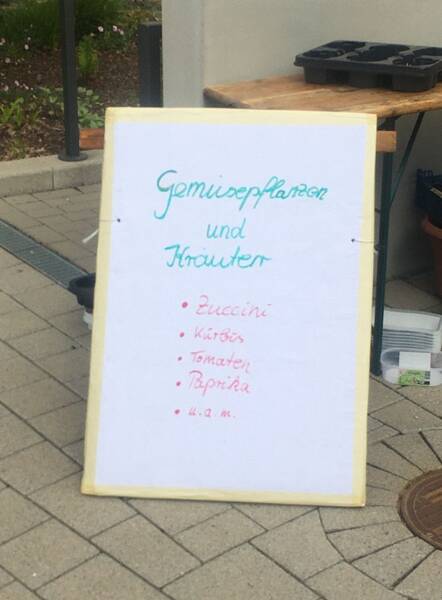 Gemüsepflanzen
und
Kräuter
• Zuccini
• Kürbis
• Tomaten
• Paprika
• u.a.m.